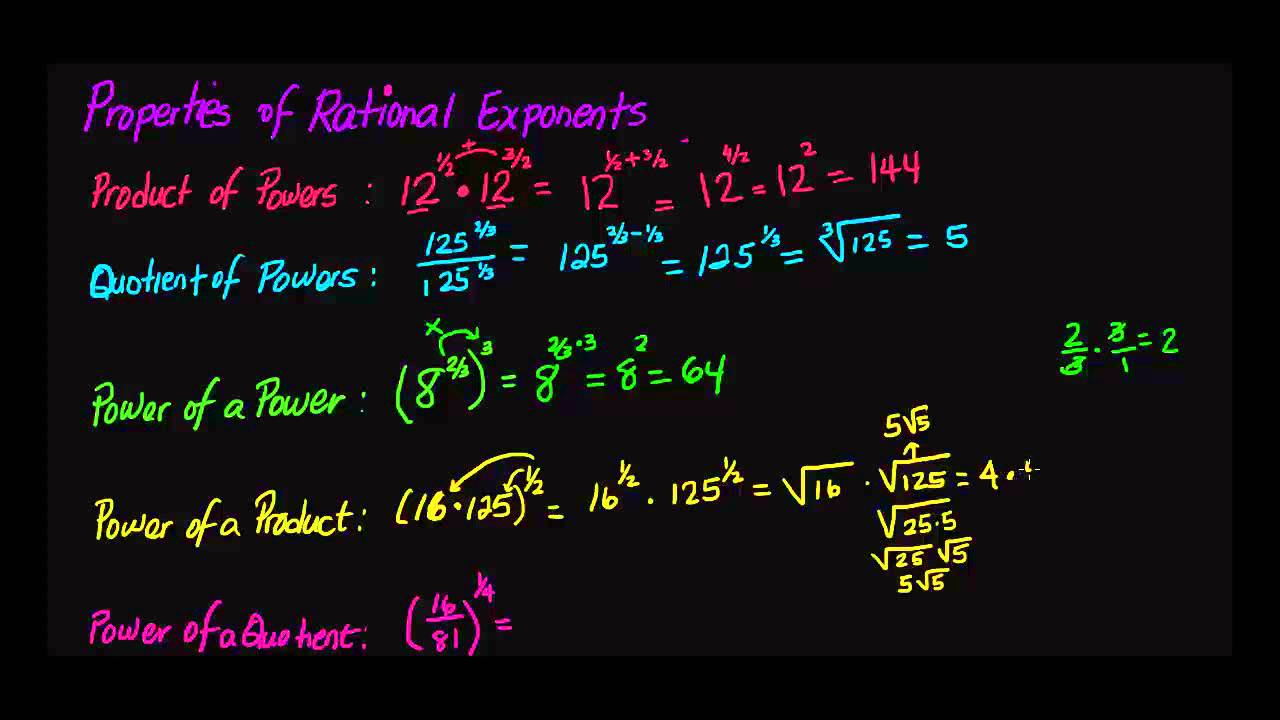 Properties of Rational Exponents
Product of Powers : 12^1/2 • 12^3/2 = 12^1/2 + 3/2 = 12^4/2 = 12^2 = 144
+
Quotient of Powers : 125^2/3 / 125^1/3 = 125^2/3 - 1/3 = 125^1/3 = ∛125 = 5
x
Power of a Power : (8^2/3)^3 = 8^2/3 • 3 = 8^2 = 64
2/3 · 3/1 = 2
5√5
Power of a Product : (16 · 125)^1/2 = 16^1/2 · 125^1/2 = √16 · √125 = 4 ·
√25·5
√25 √5
5√5
Power of a Quotient : (16/81)^1/4 =